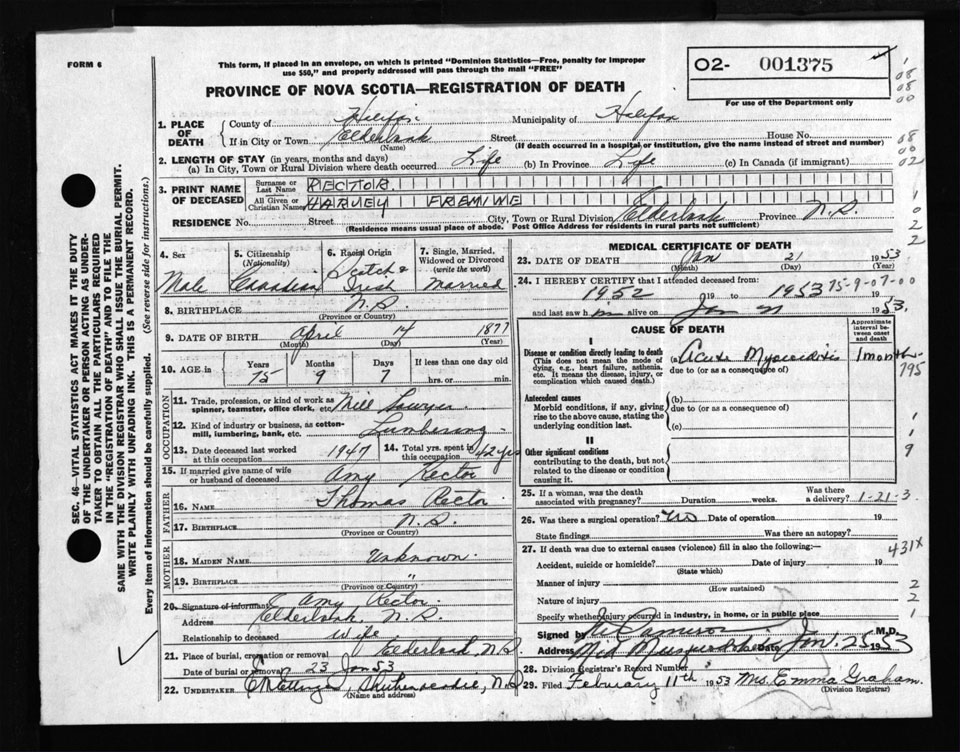 FORM 6
This form, if placed in an envelope, on which is printed "Dominion Statistics—Free, penalty for improper
use $50," and properly addressed will pass through the mail "FREE"
O2- 001375
For use of the Department only
PROVINCE OF NOVA SCOTIA—REGISTRATION OF DEATH
1. PLACE OF DEATH
County of Halifax Municipality of Halifax
If in City or Town Elderbank Street House No.
(Name) (If death occurred in a hospital or institution, give the name instead of street and number)
2. LENGTH OF STAY (in years, months and days)
(a) In City, Town or Rural Division where death occurred Life (b) In Province Life (c) In Canada (if immigrant)
3. PRINT NAME OF DECEASED
Surname or Last Name RECTOR
All Given or Christian Names HARVEY FREMINE
RESIDENCE No. Street City, Town or Rural Division Elderbank Province N.S.
(Residence means usual place of abode. Post Office Address for residents in rural parts not sufficient)
4. Sex Male
5. Citizenship (Nationality) Canadian
6. Racial Origin Scotch & Irish
7. Single, Married, Widowed or Divorced (write the word) Married
8. BIRTHPLACE N.S.
(Province or Country)
9. DATE OF BIRTH April 14 1877
(Month) (Day) (Year)
10. AGE in Years 75 Months 9 Days 7 If less than one day old
hrs. or min.
OCCUPATION
11. Trade, profession, or kind of work as spinner, teamster, office clerk, etc. Mill Sawyer
12. Kind of industry or business, as cotton-mill, lumbering, bank, etc. Lumbering
13. Date deceased last worked at this occupation 1947 14. Total yrs. spent in this occupation 42 yrs
15. If married give name of wife or husband of deceased Amy Rector
FATHER
16. NAME Thomas Rector
17. BIRTHPLACE N.S.
(Province or Country)
MOTHER
18. MAIDEN NAME Unknown
19. BIRTHPLACE "
(Province or Country)
20. Signature of informant Amy Rector
Address Elderbank, N.S.
Relationship to deceased Wife
21. Place of burial, cremation or removal Elderbank, N.S.
Date of burial or removal 23 Jan 53
22. UNDERTAKER N.S
(Name and address)
MEDICAL CERTIFICATE OF DEATH
23. DATE OF DEATH Jan 21 1953
(Month) (Day) (Year)
24. I HEREBY CERTIFY that I attended deceased from:
1952 19 to 1953 75-9-07-00
and last saw him alive on Jan 1953.
CAUSE OF DEATH
Approximate interval between onset and death
I
Disease or condition directly leading to death (a) Acute Myocarditis 1 month
(This does not mean the mode of dying, e.g., heart failure, asthenia, etc. It means the disease, injury, or complication which caused death.)
due to (or as a consequence of)
795
Antecedent causes
Morbid conditions, if any, giving rise to the above cause, stating the underlying condition last.
(b)
due to (or as a consequence of)
(c)
II
Other significant conditions
contributing to the death, but not related to the disease or condition causing it.
25. If a woman, was the death associated with pregnancy? Duration weeks. Was there a delivery? 1-21-3
26. Was there a surgical operation? No Date of operation 19
State findings Was there an autopsy?
27. If death was due to external causes (violence) fill in also the following:—
431x
Accident, suicide or homicide? Date of injury 19
(State which)
Manner of injury 2
(How sustained)
Nature of injury 2
Specify whether injury occurred in industry, in home, or in public place 1
Signed by M.D.
Address Mid Musquodoboit Date Jan 25 1953
28. Division Registrar's Record Number
29. Filed Febuary 11th 1953 Mrs. Emma Graham.
(Division Registrar)
SEC. 46—VITAL STATISTICS ACT MAKES IT THE DUTY
OF THE UNDERTAKER OR PERSON ACTING AS UNDER-
TAKER TO OBTAIN ALL THE PARTICULARS REQUIRED
IN THE "REGISTRATION OF DEATH" AND TO FILE THE
SAME WITH THE DIVISION REGISTRAR WHO SHALL ISSUE THE BURIAL PERMIT.
WRITE PLAINLY WITH UNFADING INK. THIS IS A PERMANENT RECORD.
Every item of information should be carefully supplied. (See reverse side for instructions.)